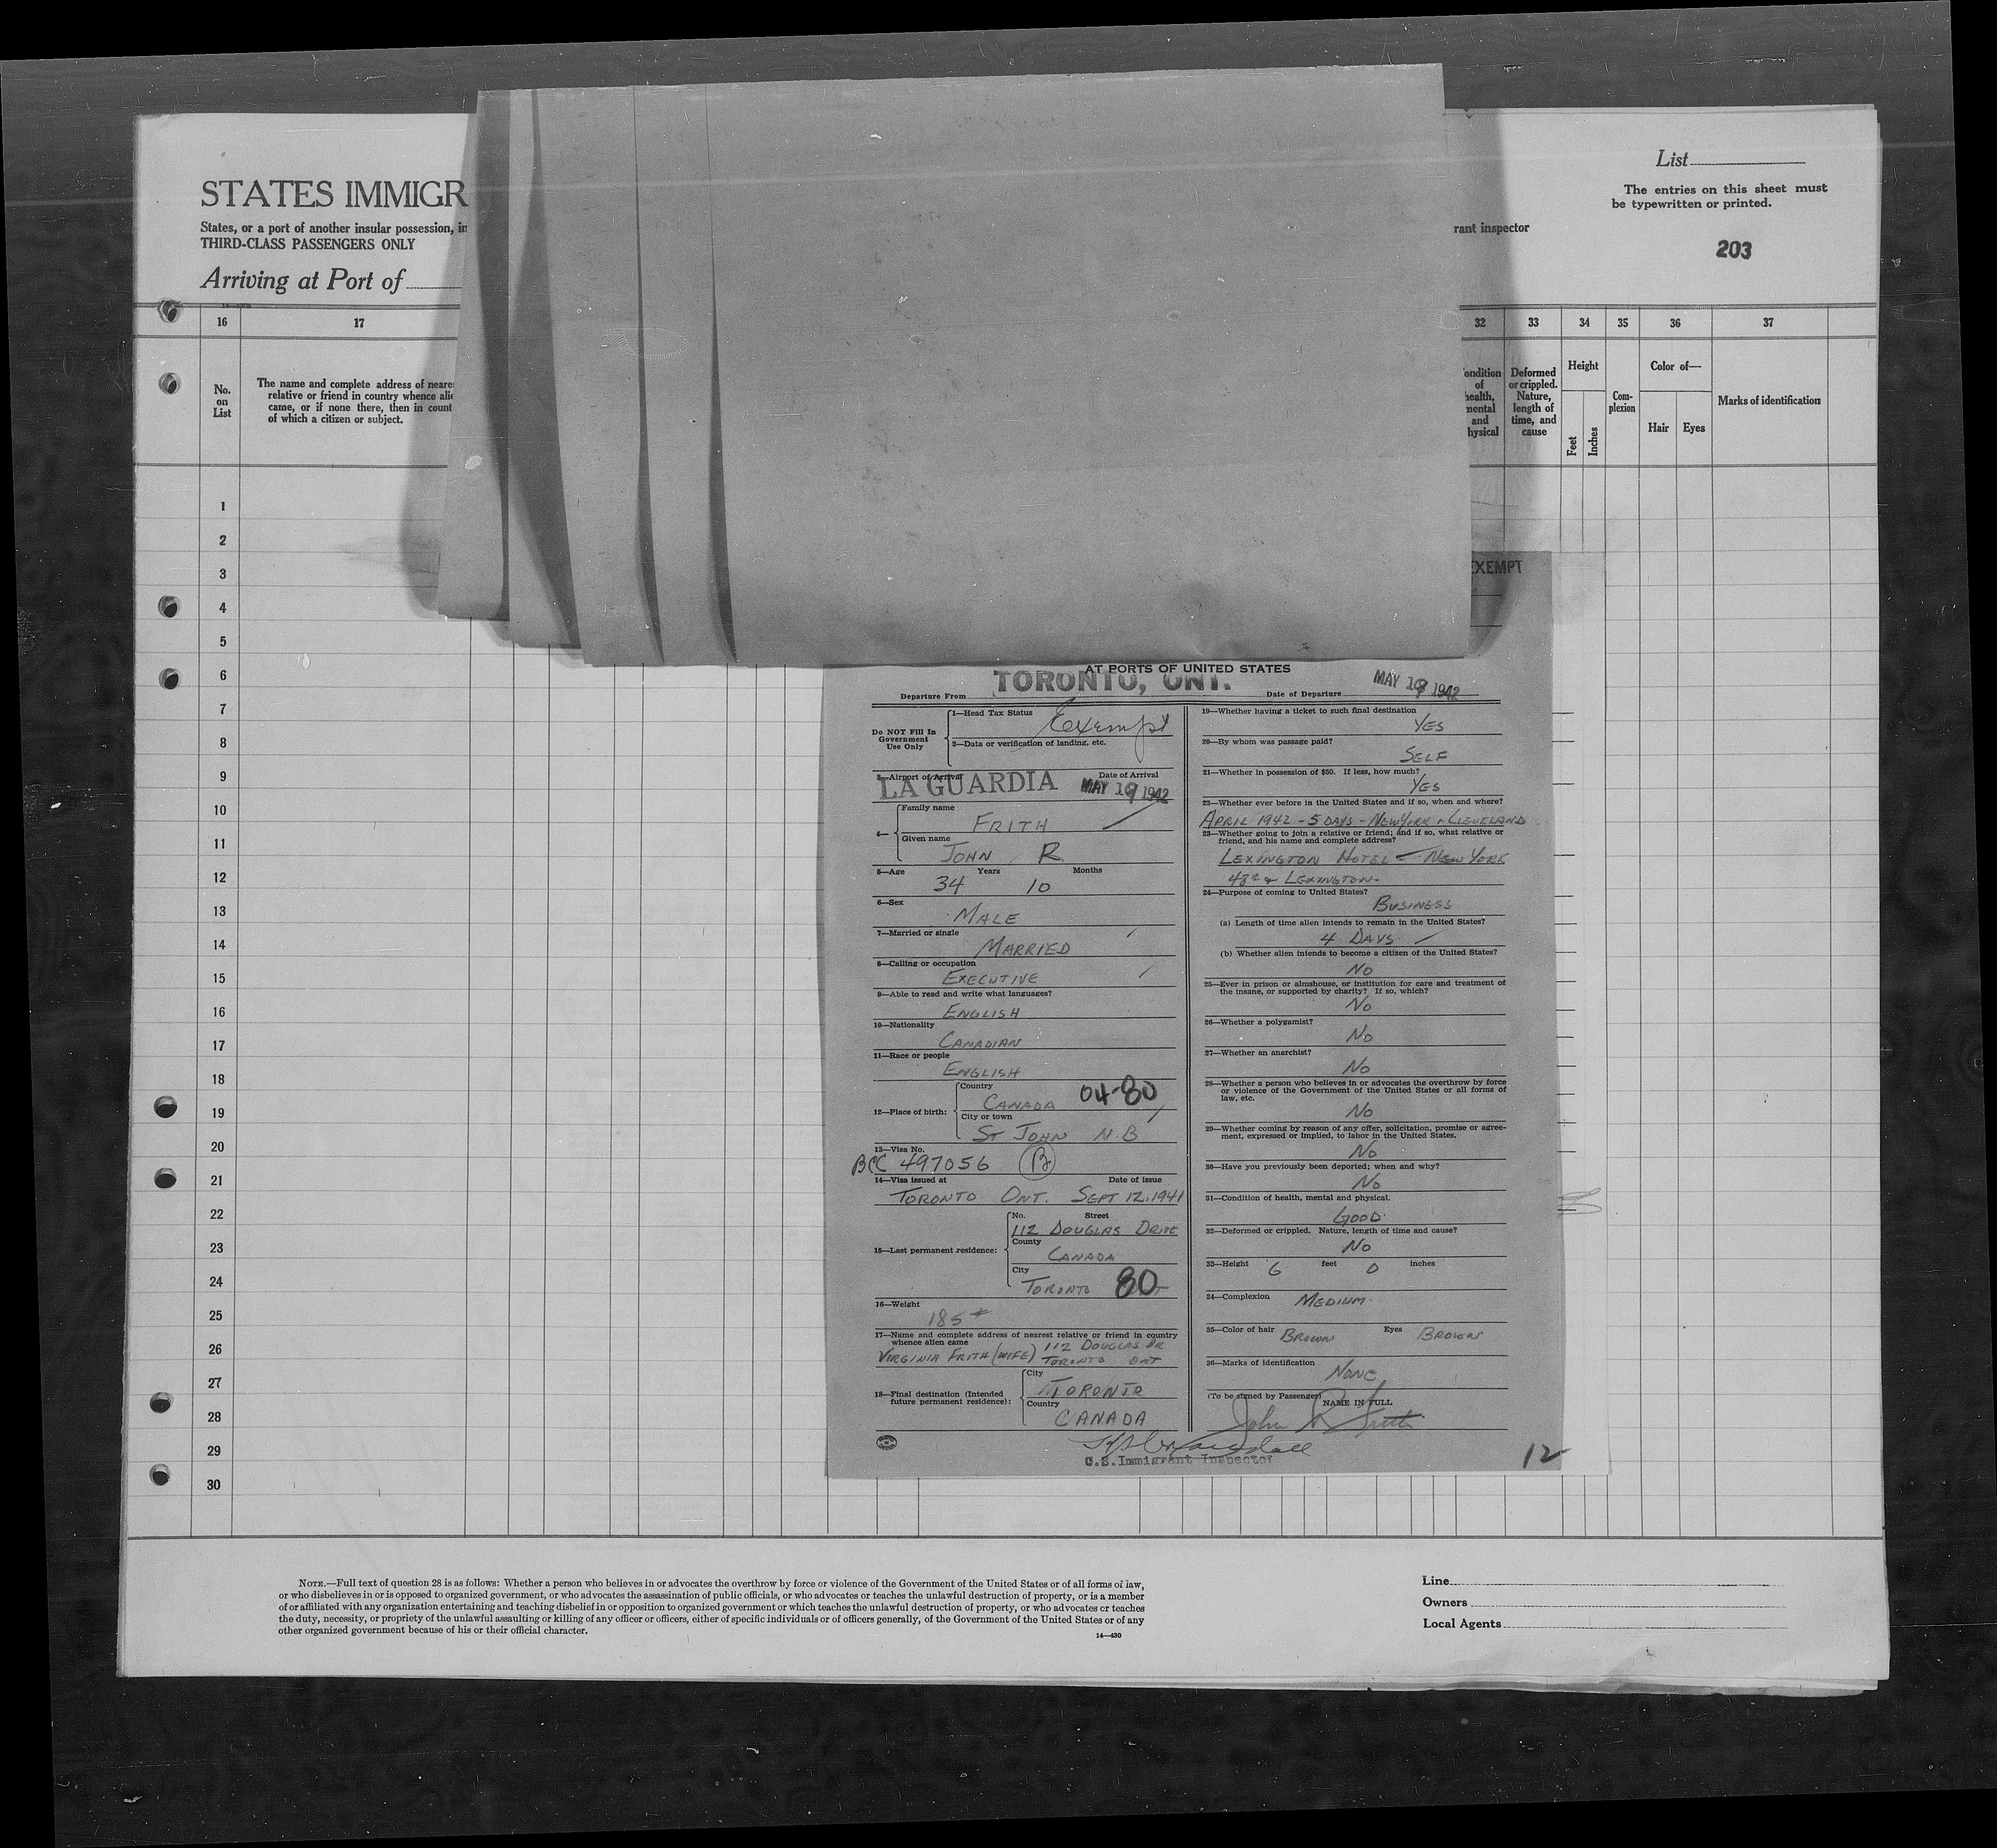 STATES IMMIGR
States, or a port of another insular possession, in
THIRD-CLASS PASSENGERS ONLY
Arriving at Port of
rant inspector
List
The entries on this sheet must
be typewritten or printed.
203
16
17
32
33
34
35
36
37
No.
on
List
The name and complete address of neare
relative or friend in country whence alie
came, or if none there, then in count
of which a citizen or subject.
ondition
of
health,
mental
and
hysical
Deformed
or crippled.
Nature,
length of
time, and
cause
Height
Feet
Inches
Com-
plexion
Color of—
Hair
Eyes
Marks of identification
1
2
3
4
5
6
7
8
9
10
11
12
13
14
15
16
17
18
19
20
21
22
23
24
25
26
27
28
29
30
EXEMPT
AT PORTS OF UNITED STATES
Departure From TORONTO, ONT.
Date of Departure MAY 1942
Do NOT Fill In
Government
Use Only
1—Head Tax Status Exempt
2—Data or verification of landing, etc.
3—Airport of Arrival
Date of Arrival
LA GUARDIA MAY 1942
4—
Family name
FRITH
Given name
JOHN R
5—Age Years Months
34 10
6—Sex
MALE
7—Married or single
MARRIED
8—Calling or occupation
EXECUTIVE
9—Able to read and write what languages?
ENGLISH
10—Nationality
CANADIAN
11—Race or people
ENGLISH
12—Place of birth:
Country
CANADA 04-80
City or town
ST JOHN N.B
13—Visa No.
BCC 497056 B
14—Visa issued at Date of issue
TORONTO ONT. SEPT 12, 1941
15—Last permanent residence:
No. Street
112 DOUGLAS DRIVE
County
CANADA
City
TORONTO 80
16—Weight
185 #
17—Name and complete address of nearest relative or friend in country
whence alien came
VIRGINIA FRITH (WIFE) 112 DOUGLAS DR
TORONTO ONT
18—Final destination (Intended
future permanent residence):
City
TORONTO
Country
CANADA
19—Whether having a ticket to such final destination
YES
20—By whom was passage paid?
SELF
21—Whether in possession of $50. If less, how much?
YES
22—Whether ever before in the United States and if so, when and where?
APRIL 1942 - 5 DAYS - NEW YORK + CLEVELAND
23—Whether going to join a relative or friend; and if so, what relative or
friend, and his name and complete address?
LEXINGTON HOTEL - NEW YORK
48th & LEXINGTON.
24—Purpose of coming to United States?
BUSINESS
(a) Length of time alien intends to remain in the United States?
4 DAYS
(b) Whether alien intends to become a citizen of the United States?
NO
25—Ever in prison or almshouse, or institution for care and treatment of
the insane, or supported by charity? If so, which?
NO
26—Whether a polygamist?
NO
27—Whether an anarchist?
NO
28—Whether a person who believes in or advocates the overthrow by force
or violence of the Government of the United States or all forms of
law, etc.
NO
29—Whether coming by reason of any offer, solicitation, promise or agree-
ment, expressed or implied, to labor in the United States.
NO
30—Have you previously been deported; when and why?
NO
31—Condition of health, mental and physical.
GOOD
32—Deformed or crippled. Nature, length of time and cause?
NO
33—Height 6 feet 0 inches
34—Complexion MEDIUM
35—Color of hair BROWN Eyes BROWN
36—Marks of identification
NONE
(To be signed by Passenger)
NAME IN FULL
John R Frith
U.S. Immigrant Inspector
12
NOTE.—Full text of question 28 is as follows: Whether a person who believes in or advocates the overthrow by force or violence of the Government of the United States or of all forms of law,
or who disbelieves in or is opposed to organized government, or who advocates the assassination of public officials, or who advocates or teaches the unlawful destruction of property, or is a member
of or affiliated with any organization entertaining and teaching disbelief in or opposition to organized government or which teaches the unlawful destruction of property, or who advocates or teaches
the duty, necessity, or propriety of the unlawful assaulting or killing of any officer or officers, either of specific individuals or of officers generally, of the Government of the United States or of any
other organized government because of his or their official character.
14—430
Line
Owners
Local Agents